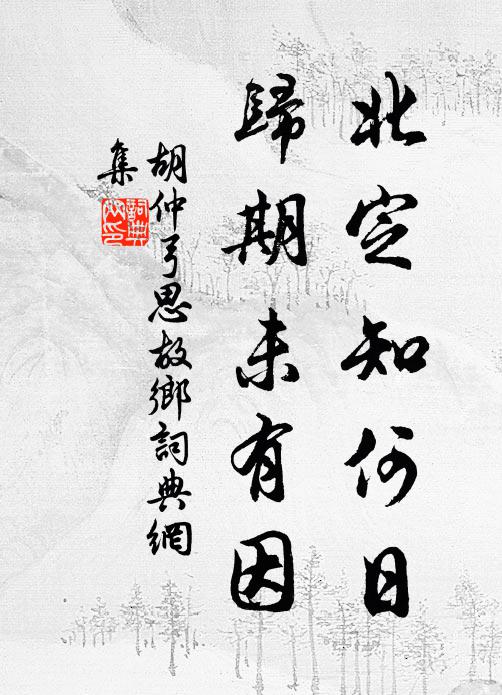 北定知何日
歸期未有因
胡仲弓思故鄉詞典網
集
詞典网印